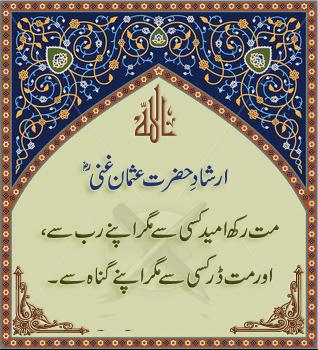 اللہ
ارشادِ حضرت عثمان غنیؓ
مت رکھ امید کسی سے مگر اپنے رب سے،
اور مت ڈر کسی سے مگر اپنے گناہ سے۔